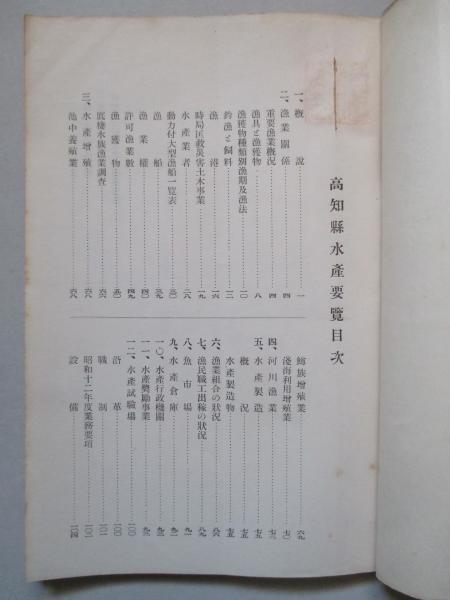 高知縣水產要覽目次
一、概說……一
二、漁業關係……四
重要漁業概況……四
漁具と漁獲物……八
漁獲物種類別漁期及漁法……一〇
釣漁と餌料……一三
漁港……一六
時局匡救災害土木事業……一九
水產業者……二八
動力付大型漁船一覽表……三〇
漁船
漁業權……四〇
許可漁業數……四九
漁獲物……五〇
底棲水族漁業調查……六六
三、水產增殖……六八
池中養殖業……六八
鰤族增殖業……六九
淺海利用增殖業……七〇
四、河川漁業……七三
五、水產製造……七五
概況……七五
水產製造物……七五
六、漁業組合の狀況……八六
七、漁民職工出稼の狀況……八九
八、魚市場……九一
九、水產倉庫……九二
一〇、水產行政機關……九三
一一、水產獎勵事業……九三
一二、水產試驗場……一〇〇
沿革……一〇〇
職制……一〇一
昭和十二年度業務要項……一〇二
設備……一〇四